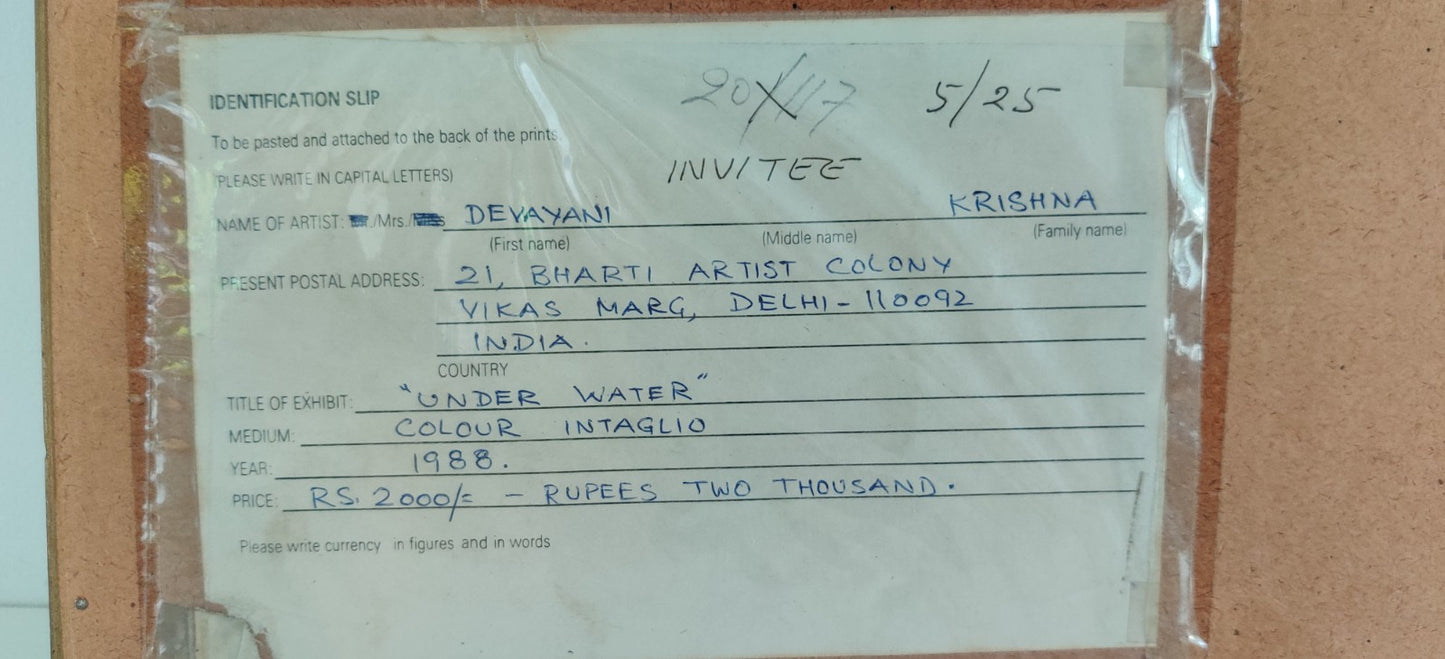 IDENTIFICATION SLIP
5/25
To be pasted and attached to the back of the prints.
INVITEE
(PLEASE WRITE IN CAPITAL LETTERS)
NAME OF ARTIST: /Mrs./ DEVAYANI KRISHNA
(First name) (Middle name) (Family name)
PRESENT POSTAL ADDRESS: 21, BHARTI ARTIST COLONY
VIKAS MARG, DELHI-110092
INDIA.
COUNTRY
TITLE OF EXHIBIT: "UNDER WATER"
MEDIUM: COLOUR INTAGLIO
YEAR: 1988.
PRICE: RS. 2000/= - RUPEES TWO THOUSAND.
Please write currency in figures and in words